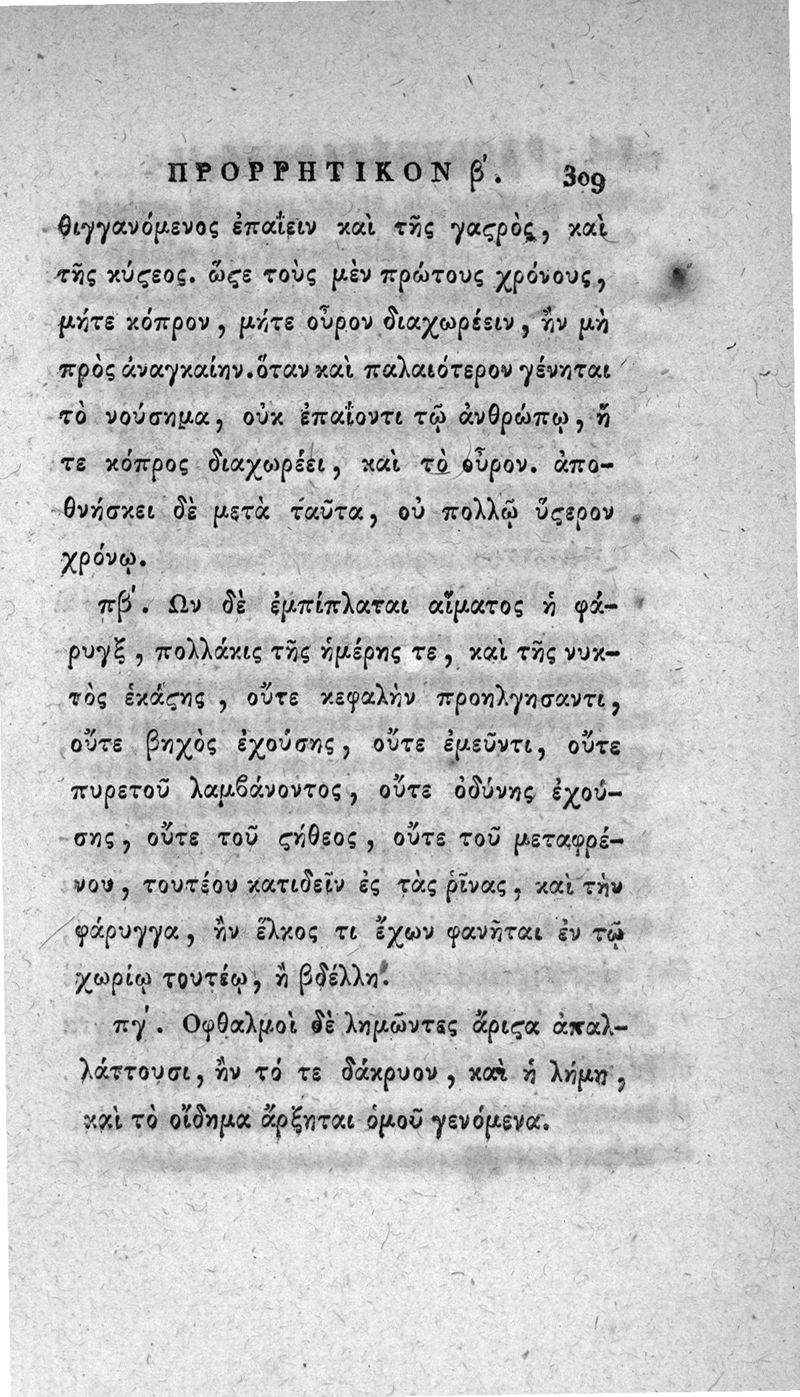 ΠΡΟΡΡΗΤΙΚΟΝ β΄. 309
θιγγανόμενος ἐπαΐειν καὶ τῆς γαϛρὸς, καὶ
τῆς κύϛεος. ὥϛε τοὺς μὲν πρώτους χρόνους,
μήτε κόπρον, μήτε οὖρον διαχωρέειν, ἢν μὴ
πρὸς ἀναγκαίην. ὅταν καὶ παλαιότερον γένηται
τὸ νούσημα, οὐκ ἐπαΐοντι τῷ ἀνθρώπῳ, ἥ
τε κόπρος διαχωρέει, καὶ τὸ οὖρον. ἀπο-
θνήσκει δὲ μετὰ ταῦτα, οὐ πολλῷ ὕϛερον
χρόνῳ.
πβ΄. Ων δὲ ἐμπίπλαται αἵματος ἡ φά-
ρυγξ, πολλάκις τῆς ἡμέρης τε, καὶ τῆς νυκ-
τὸς ἑκάϛης, οὔτε κεφαλὴν προηλγησαντι,
οὔτε βηχὸς ἐχούσης, οὔτε ἐμεῦντι, οὔτε
πυρετοῦ λαμβάνοντος, οὔτε ὀδύνης ἐχού-
σης, οὔτε τοῦ ϛήθεος, οὔτε τοῦ μεταφρέ-
νου, τουτέου κατιδεῖν ἐς τὰς ῥῖνας, καὶ τὴν
φάρυγγα, ἢν ἕλκος τι ἔχων φανῆται ἐν τῷ
χωρίῳ τουτέῳ, ἢ βδέλλη.
πγ΄. Οφθαλμοὶ δὲ λημῶντες ἄριϛα ἀπαλ-
λάττουσι, ἢν τό τε δάκρυον, καὶ ἡ λήμη,
καὶ τὸ οἴδημα ἄρξηται ὁμοῦ γενόμενα.